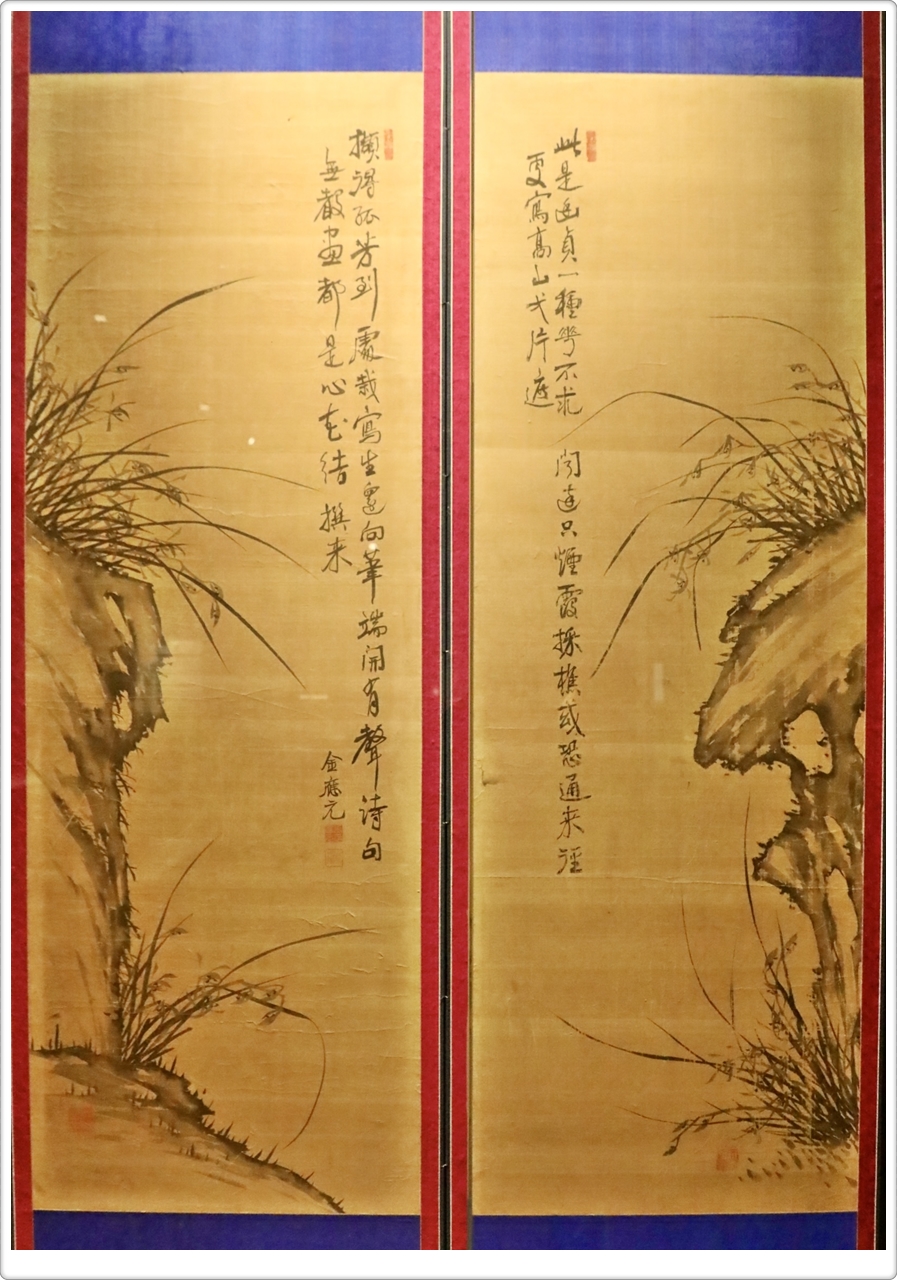 此是幽貞一種花不求聞達只煙霞採樵或恐通来徑
更寫高山弌片遮
擷得孤芳到處栽寫生還向筆端開有聲詩句
無聲畫都是心花結撰来
金應元